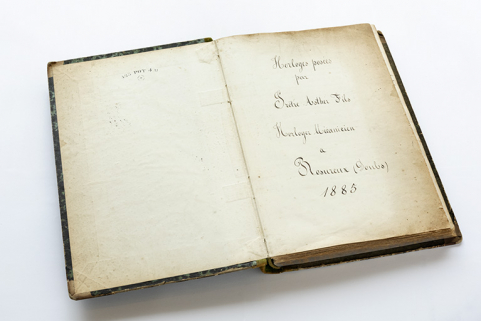 Horloges posées
par
Frère Asther Fils
Horloger Mécanicien
à
Rosureux (Doubs)
1885